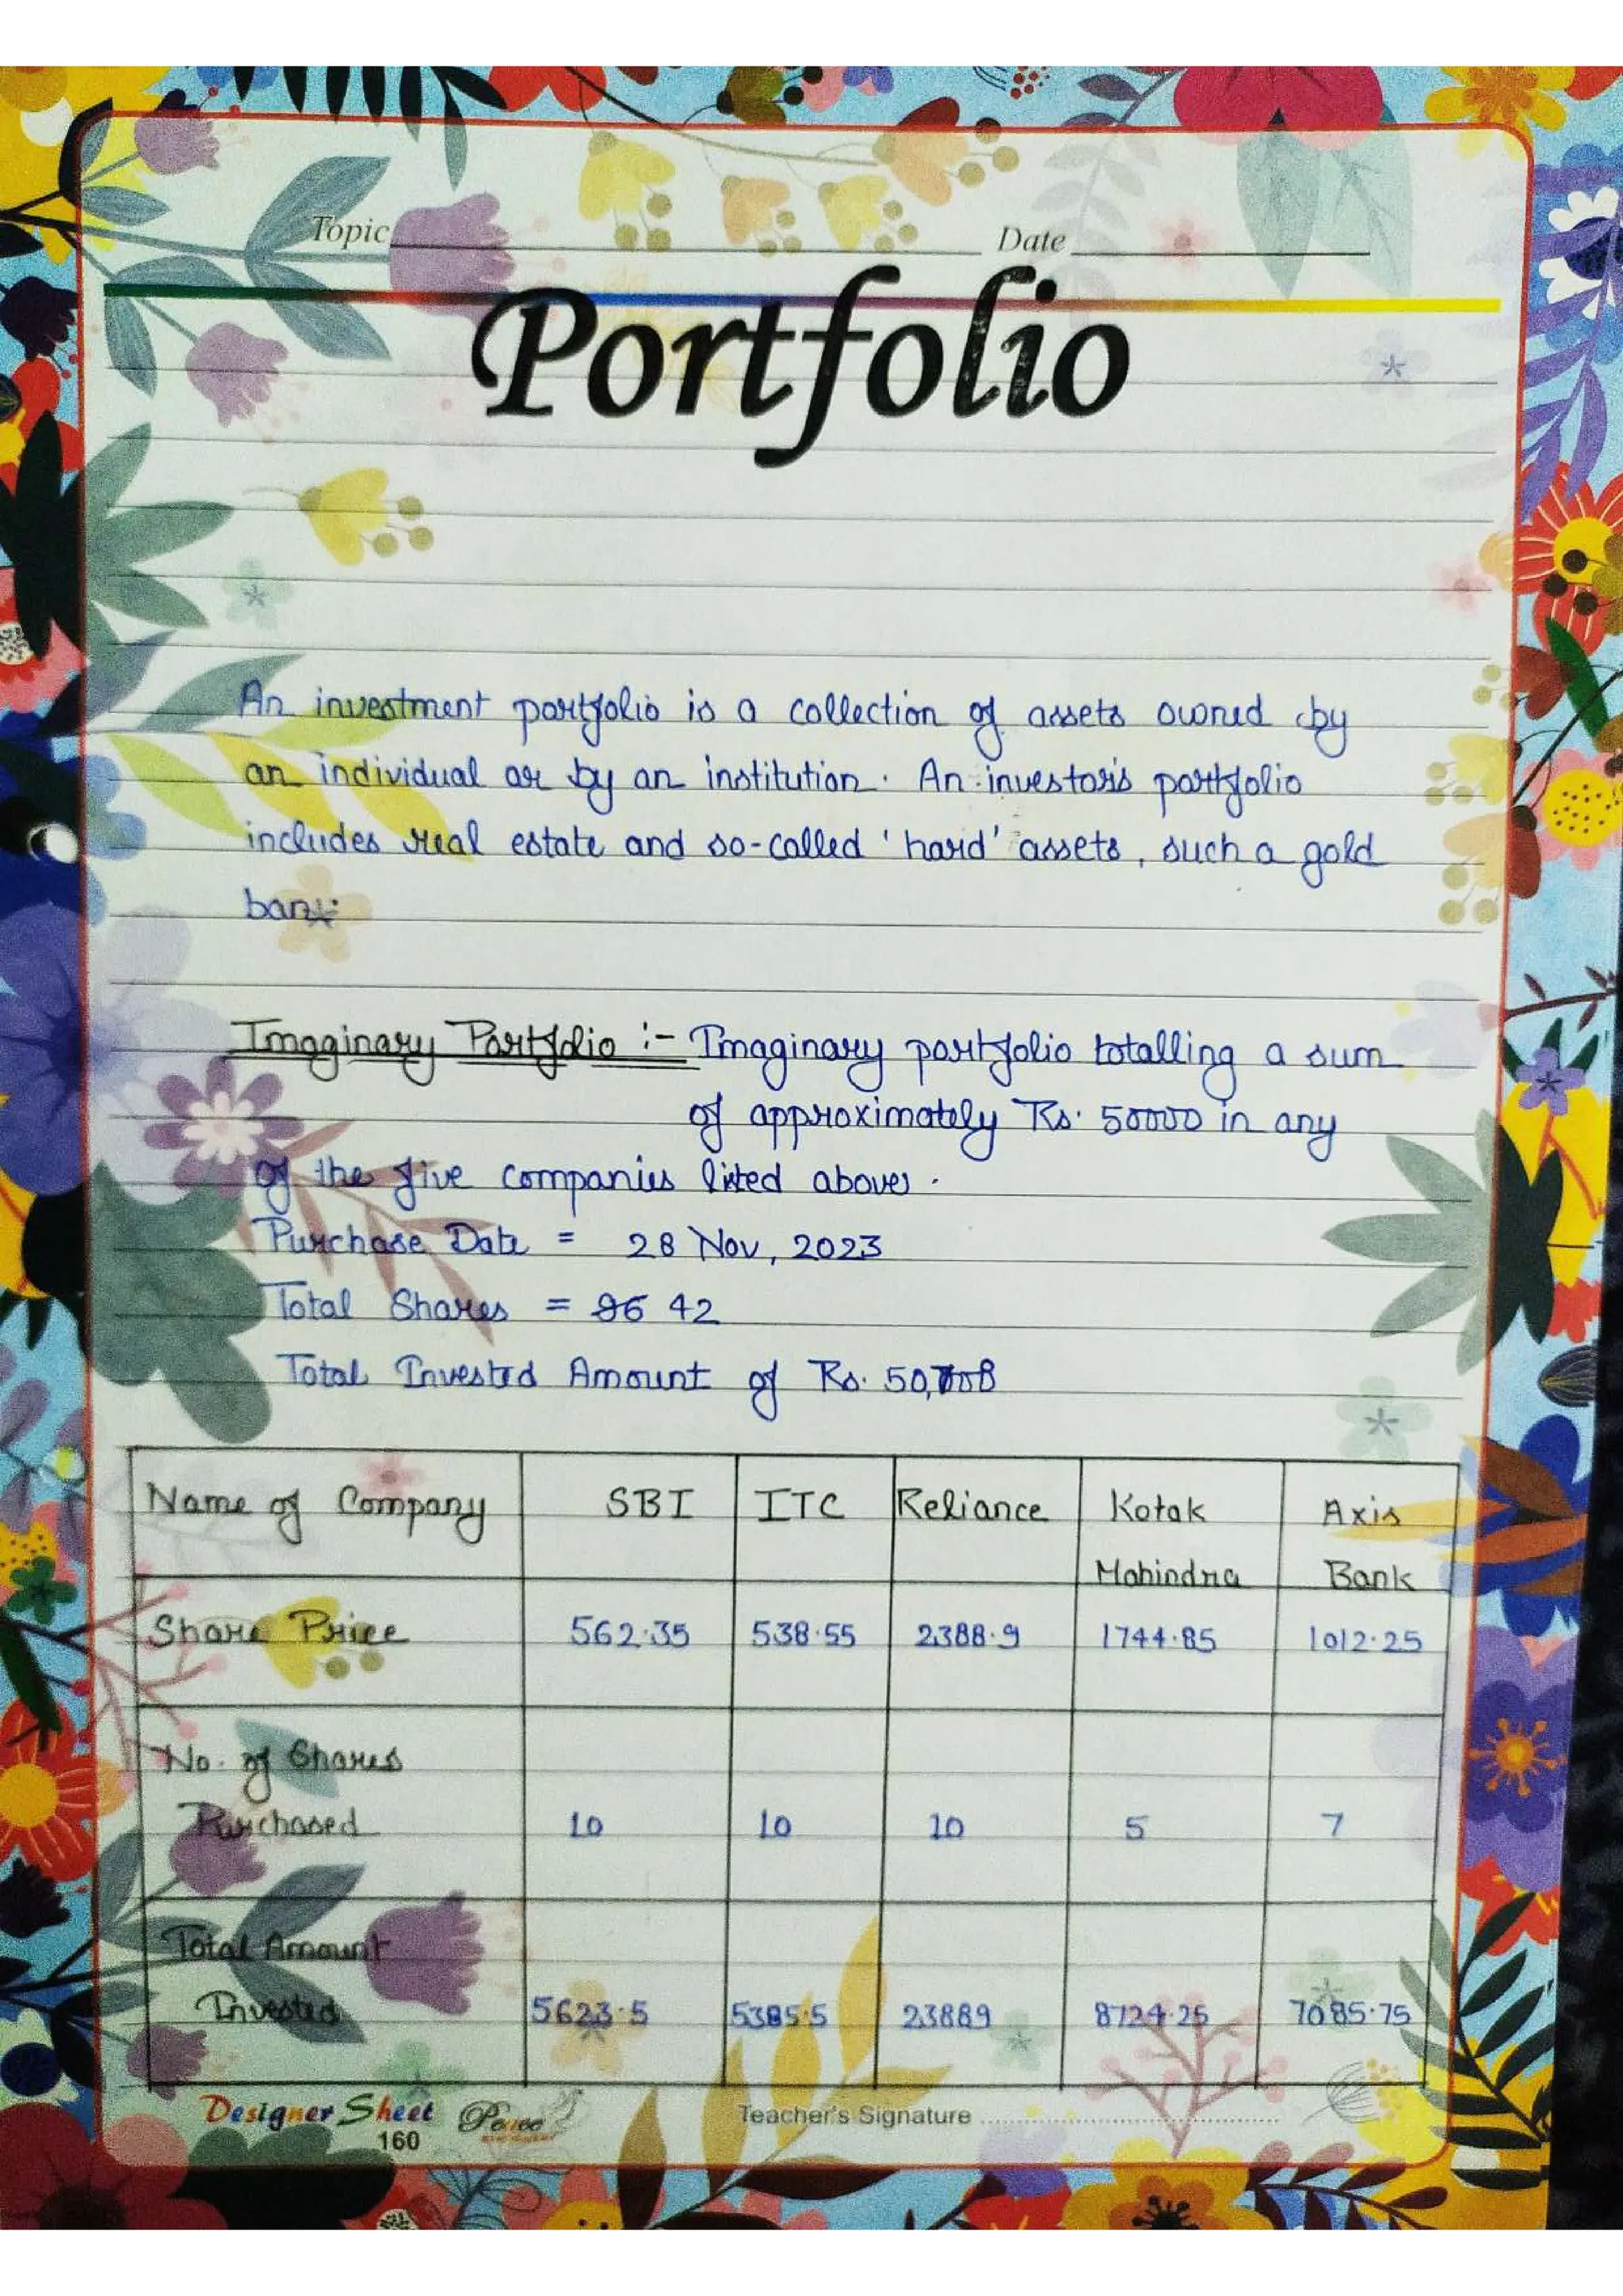 Topic Date
Portfolio
An investment portfolio is a collection of assets owned by
an individual or by an institution. An investor's portfolio
includes real estate and so-called 'hard' assets, such a gold
bars.
Imaginary Portfolio :- Imaginary portfolio totalling a sum
of approximately Rs. 50000 in any
of the five companies listed above.
Purchase Date = 28 Nov, 2023
Total Shares = 42
Total Invested Amount of Rs.
Name of Company SBI ITC Reliance Kotak Mahindra Axis Bank
Share Price 562.35 538.55 2388.9 1744.85 1012.25
No. of Shares
Purchased 10 10 10 5 7
Total Amount
Invested 5623.5 5385.5 23889 8724.25 7085.75
Designer Sheet
160
Teacher's Signature